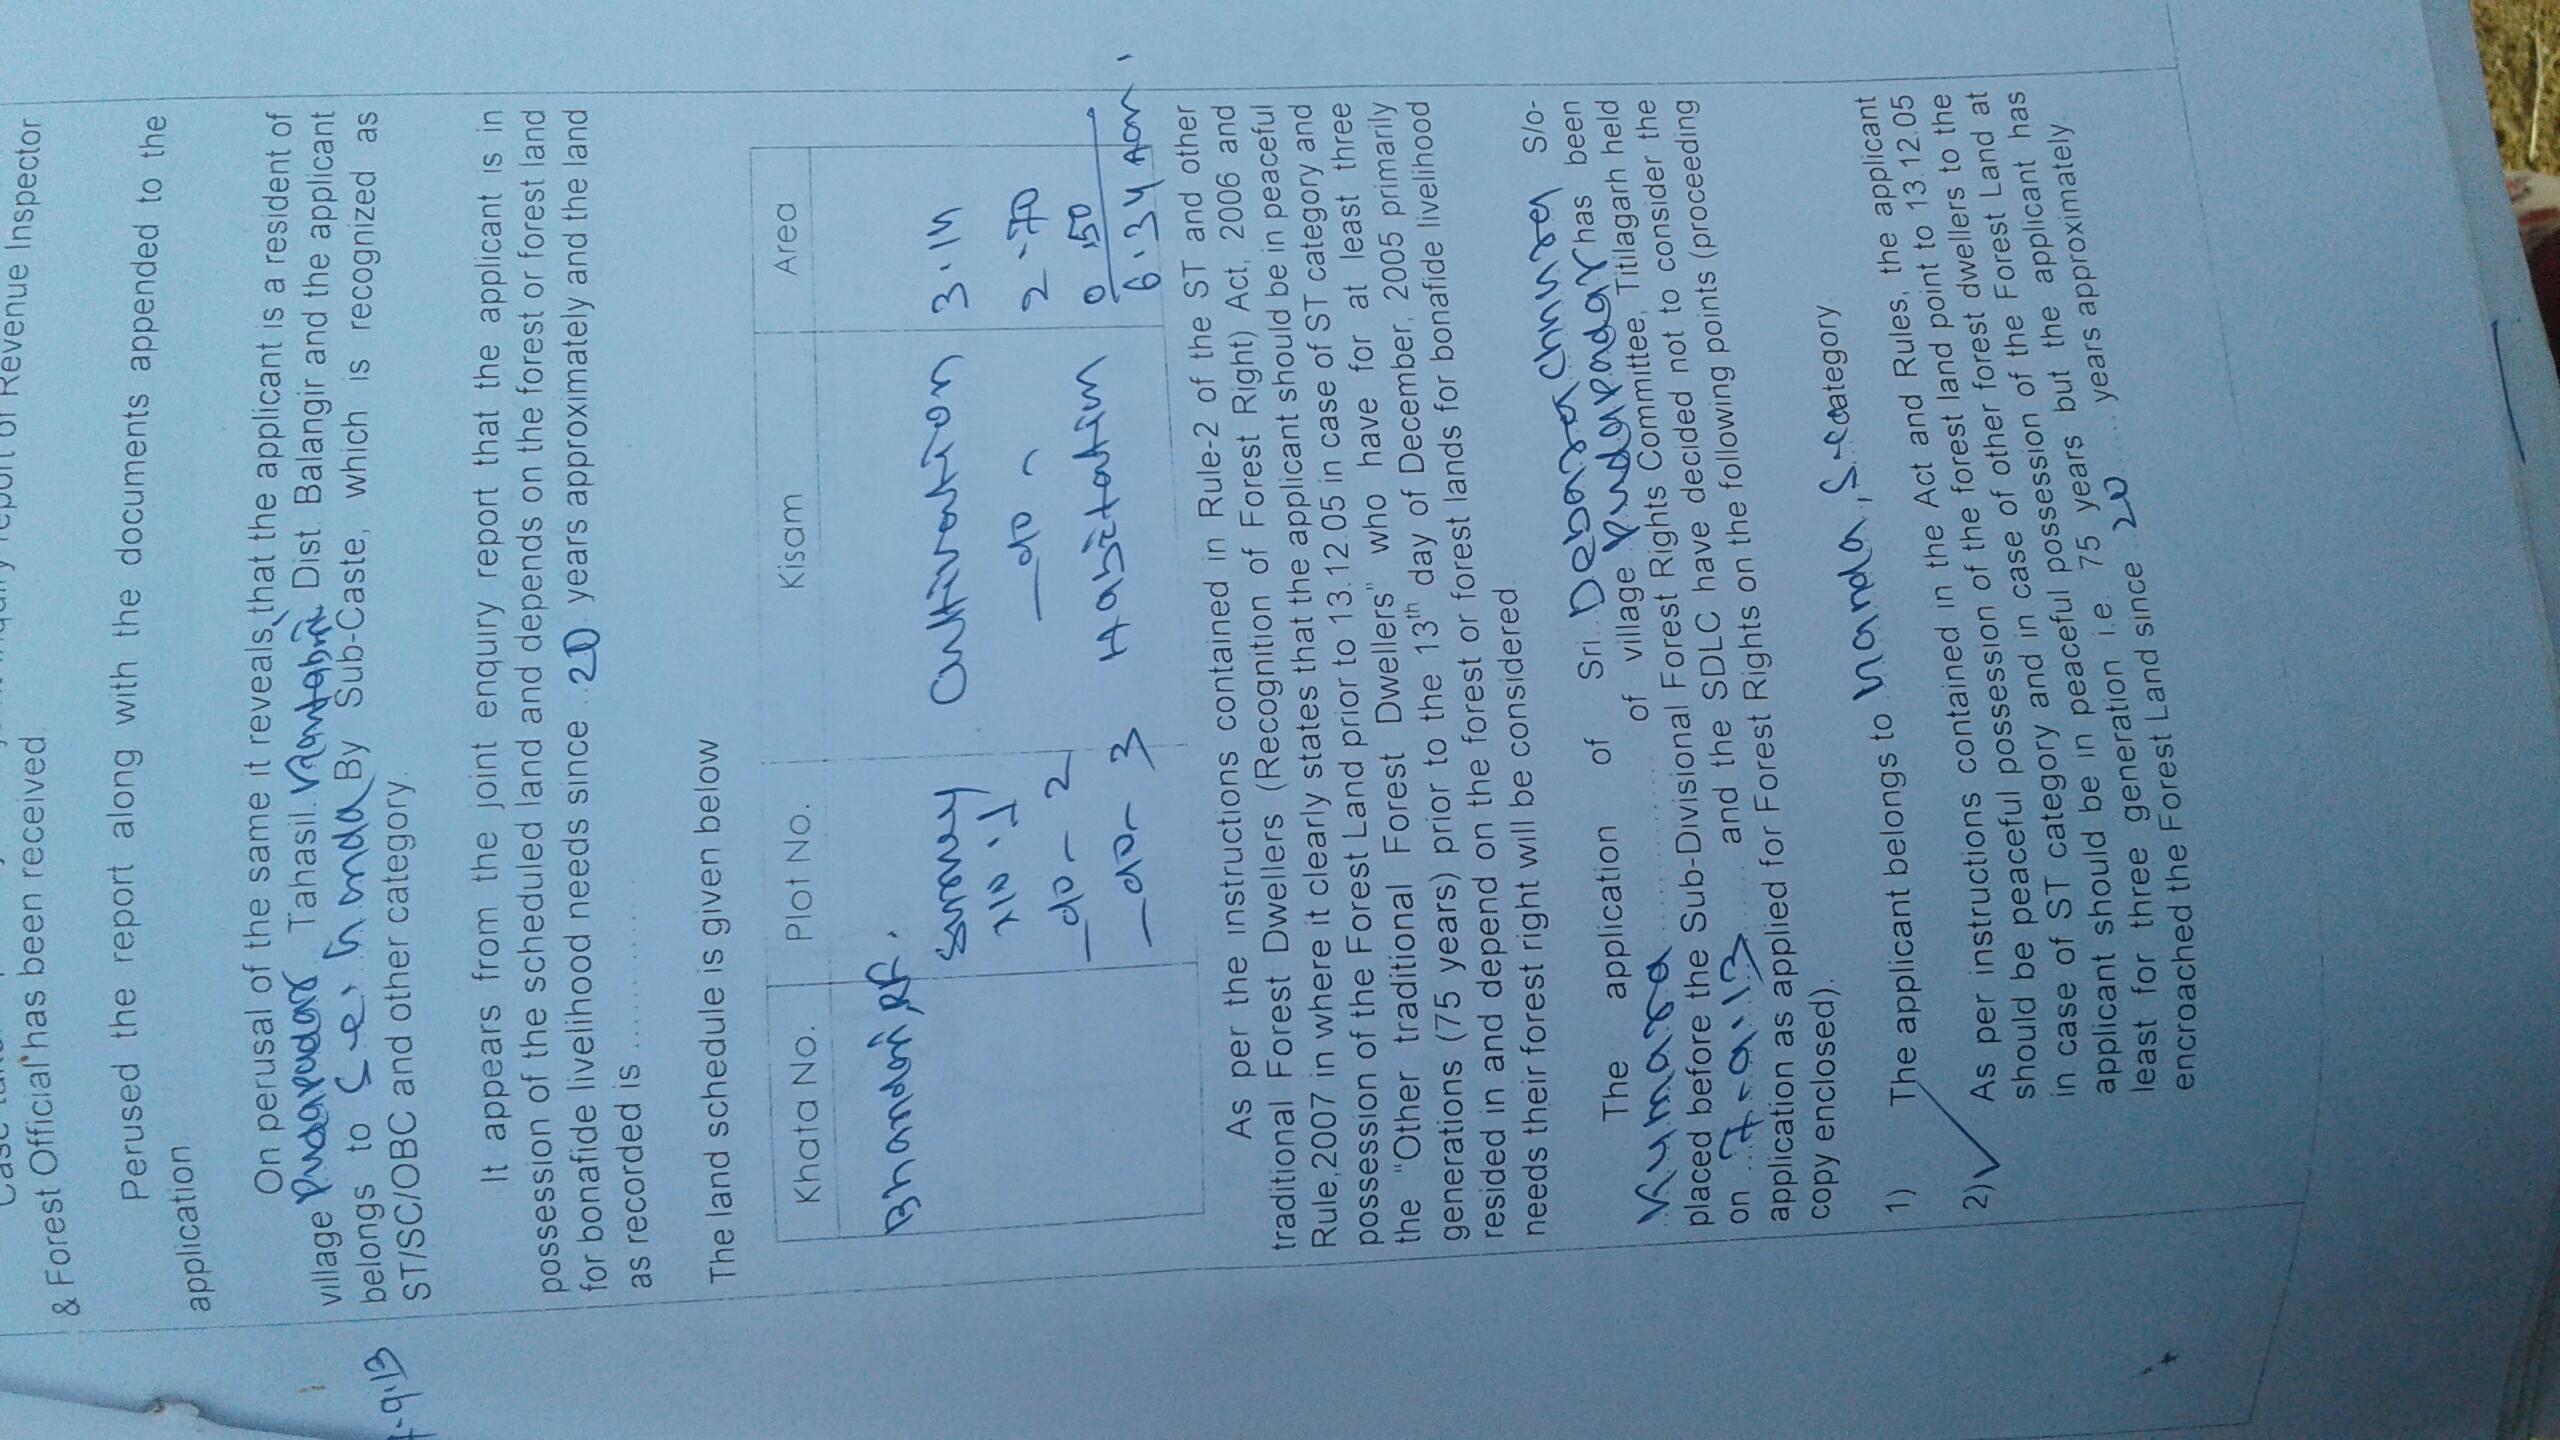 & Forest Official has been received
Perused the report along with the documents appended to the
application
On perusal of the same it reveals that the applicant is a resident of
village Pudapadar Tahasil Kantabanji Dist. Balangir and the applicant
belongs to By Sub-Caste, which is recognized as
ST/SC/OBC and other category.
It appears from the joint enquiry report that the applicant is in
possession of the scheduled land and depends on the forest or forest land
for bonafide livelihood needs since 20 years approximately and the land
as recorded is ............
The land schedule is given below
Khata No. Plot No. Kisam Area
Bhandari RF.
Survey Cultivation 3.14
No. 1
-do- 2 -do- 2-70
-do- 3 Habitation 0.50
6.34
As per the instructions contained in Rule-2 of the ST and other
traditional Forest Dwellers (Recognition of Forest Right) Act, 2006 and
Rule,2007 in where it clearly states that the applicant should be in peaceful
possession of the Forest Land prior to 13.12.05 in case of ST category and
the "Other traditional Forest Dwellers" who have for at least three
generations (75 years) prior to the 13th day of December, 2005 primarily
resided in and depend on the forest or forest lands for bonafide livelihood
needs their forest right will be considered
The application of Sri S/o-
of village Pudapadar has been
placed before the Sub-Divisional Forest Rights Committee, Titilagarh held
on 7-9-13 and the SDLC have decided not to consider the
application as applied for Forest Rights on the following points (proceeding
copy enclosed).
1) The applicant belongs to category.
2) As per instructions contained in the Act and Rules, the applicant
should be peaceful possession of the forest land point to 13.12.05
in case of ST category and in case of other forest dwellers to the
applicant should be in peaceful possession of the Forest Land at
least for three generation i.e. 75 years but the applicant has
encroached the Forest Land since 20 years approximately.